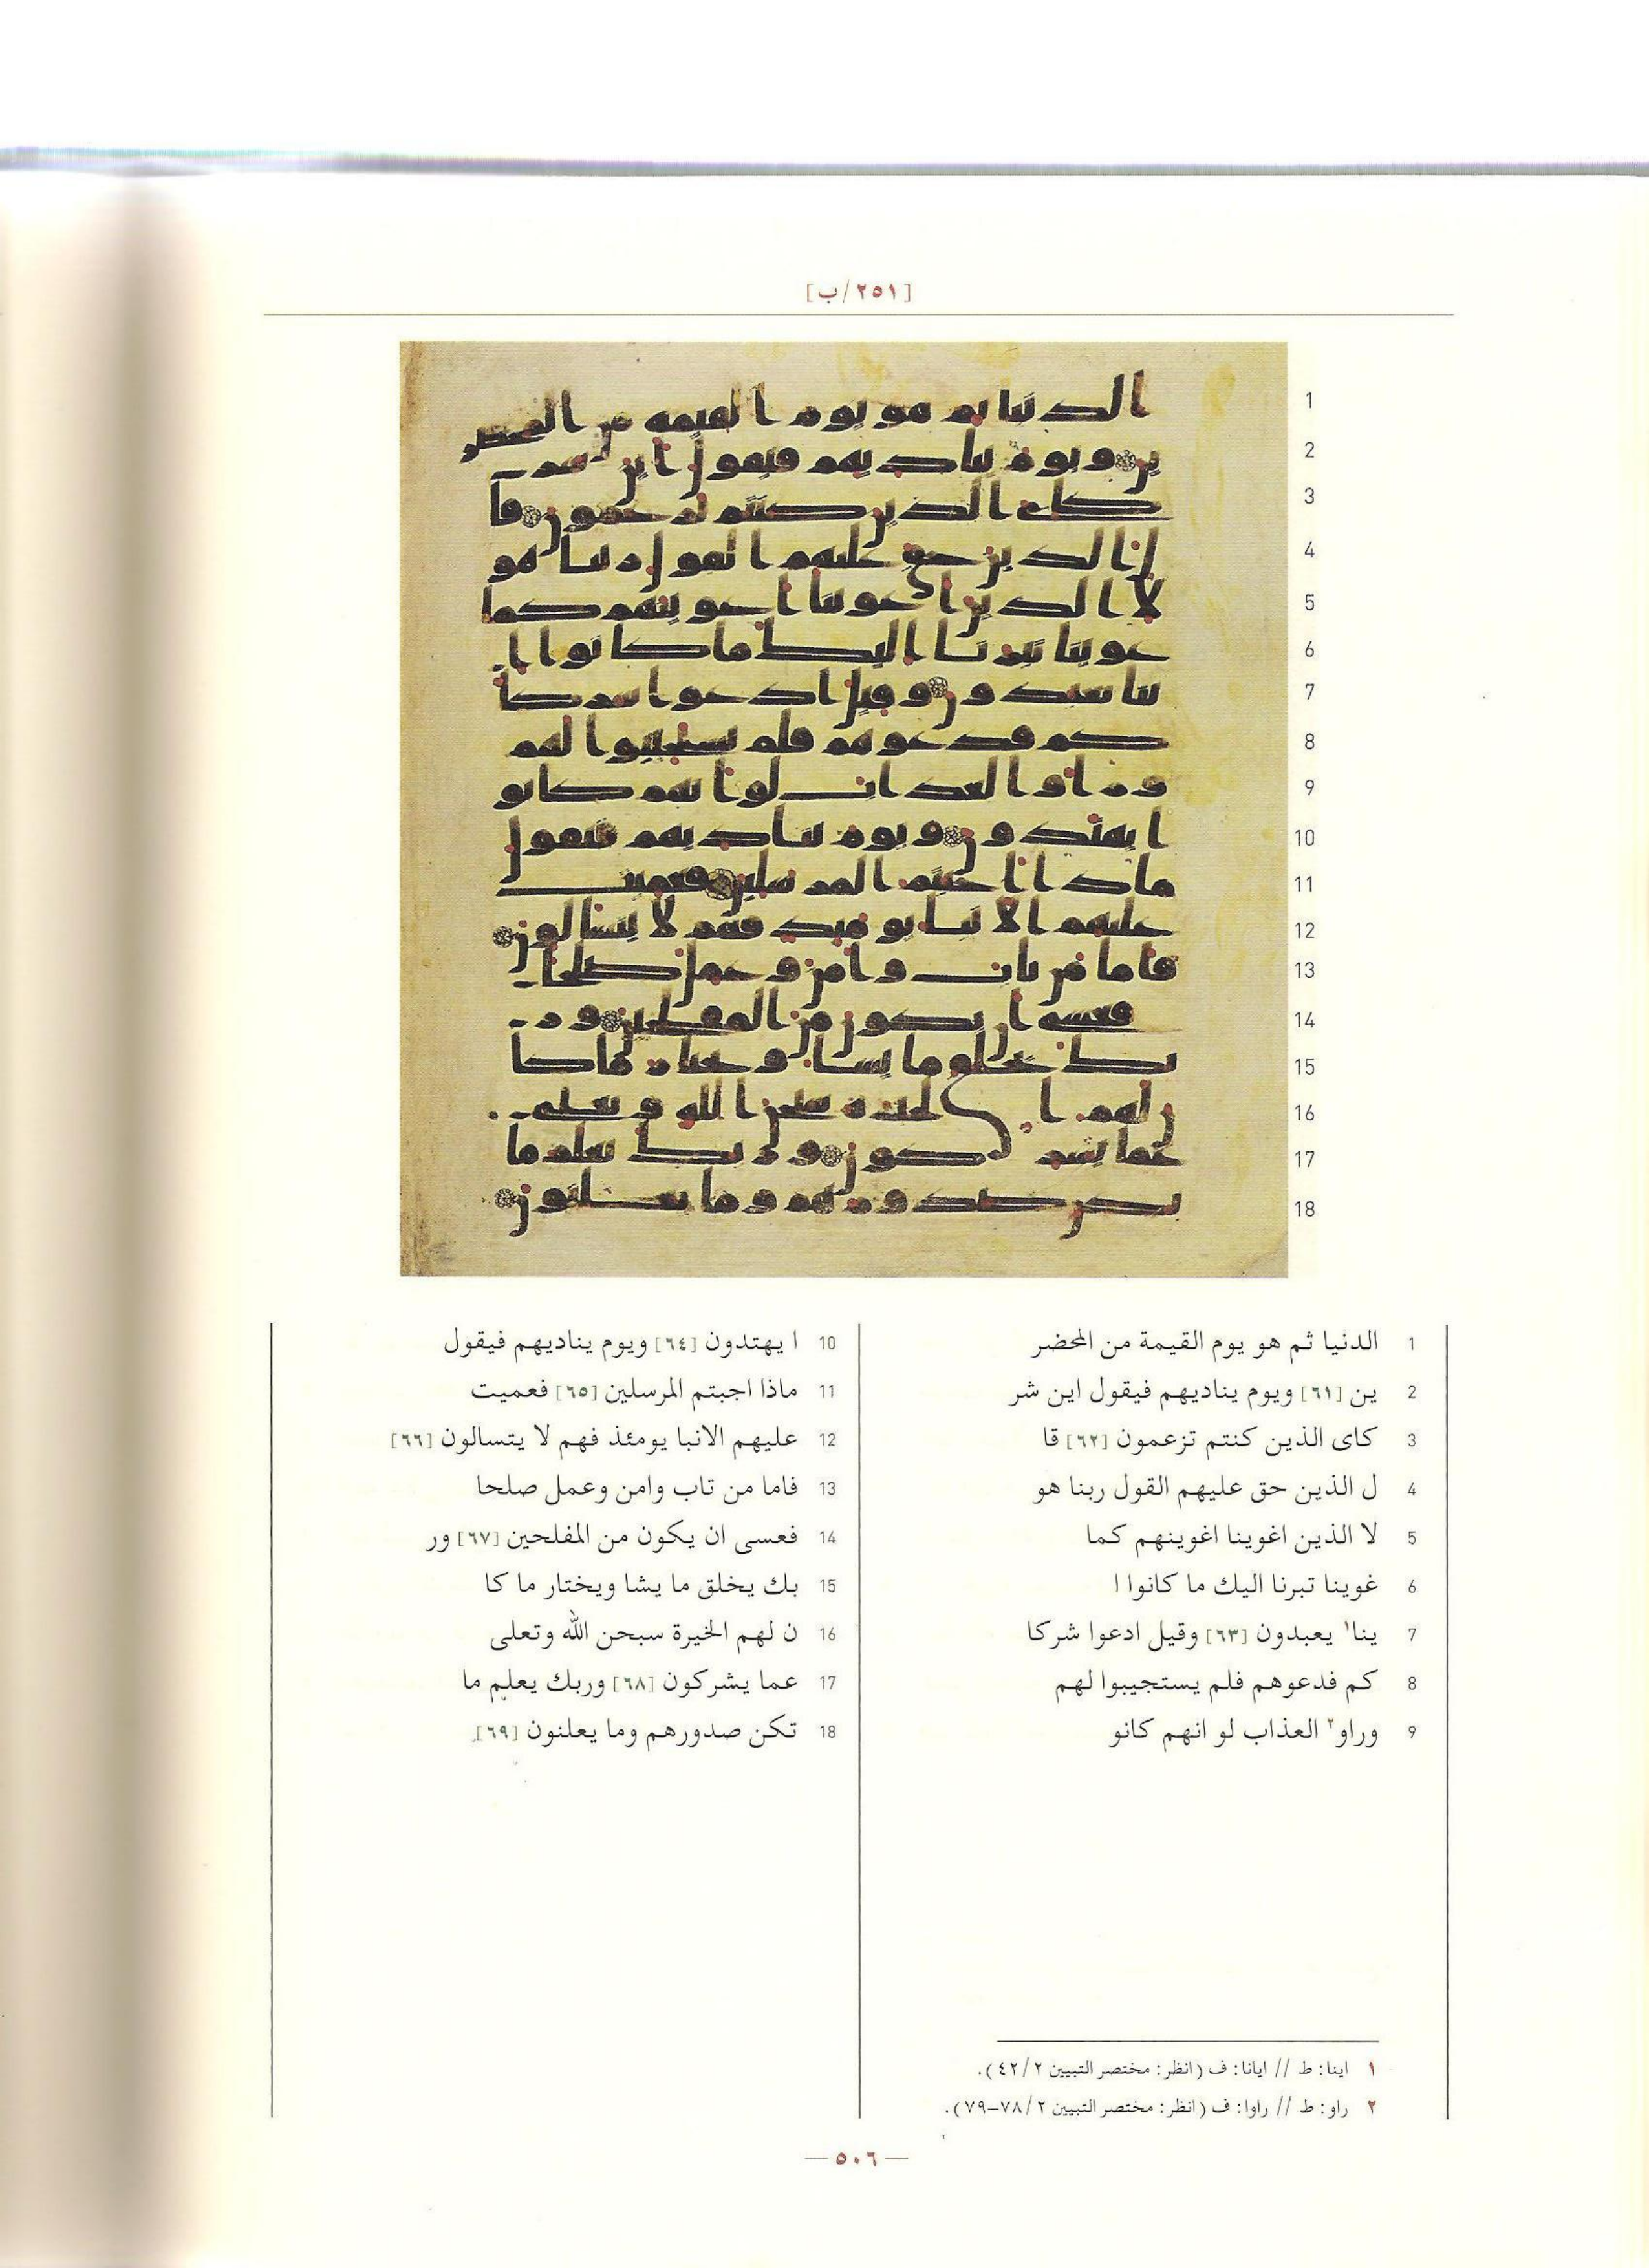 [٢٥١/ب]
1
2
3
4
5
6
7
8
9
10
11
12
13
14
15
16
17
18
1 الدنيا ثم هو يوم القيمة من المحضر
2 ين [٦١] ويوم يناديهم فيقول اين شر
3 كاى الذين كنتم تزعمون [٦٢] قا
4 ل الذين حق عليهم القول ربنا هو
5 لا الذين اغوينا اغوينهم كما
6 غوينا تبرنا اليك ما كانوا ا
7 ينا١ يعبدون [٦٣] وقيل ادعوا شركا
8 كم فدعوهم فلم يستجيبوا لهم
9 وراو٢ العذاب لو انهم كانو
10 ا يهتدون [٦٤] ويوم يناديهم فيقول
11 ماذا اجبتم المرسلين [٦٥] فعميت
12 عليهم الانبا يومئذ فهم لا يتسالون [٦٦]
13 فاما من تاب وامن وعمل صلحا
14 فعسى ان يكون من المفلحين [٦٧] ور
15 بك يخلق ما يشا ويختار ما كا
16 ن لهم الخيرة سبحن الله وتعلى
17 عما يشركون [٦٨] وربك يعلم ما
18 تكن صدورهم وما يعلنون [٦٩]
١ اينا: ط // ايانا: ف (انظر: مختصر التبيين ٤٢/٢).
٢ راو: ط // راوا: ف (انظر: مختصر التبيين ٧٨/٢-٧٩).
— ٥٠٦ —